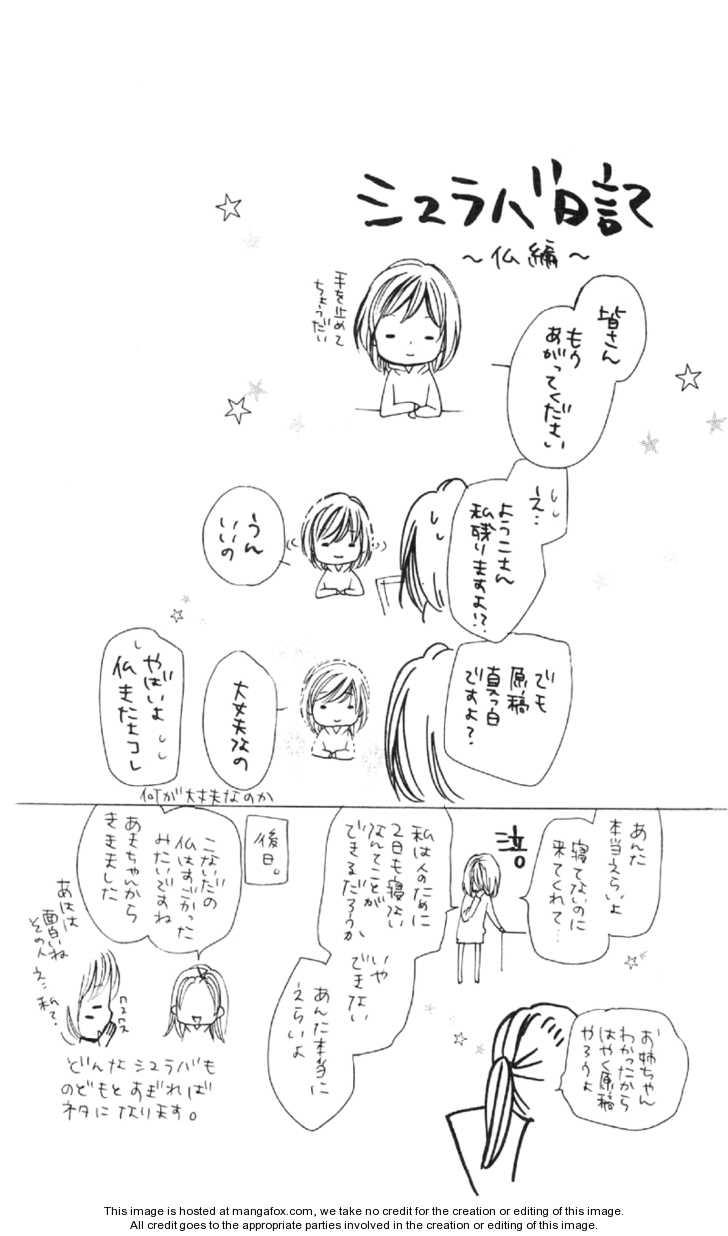 シュラバ日記
～仏編～
皆さん
もう
あがってください
手を止めて
ちょうだい
え…
ようこさん
私残りますよ!?
うん
いいの
でも
原稿
真っ白
ですよ？
大丈夫なの
やばいよ
仏きたなコレ
何が大丈夫なのか
あんた
本当えらいよ
寝てないのに
来てくれて…
泣。
私は人のために
2日も寝ない
なんてことが
できるだろうか
いや
できない
あんた本当に
えらいよ
お姉ちゃん
わかったから
はやく原稿
やろうよ
後日。
こないだの
仏はすごかった
みたいですね
あまちゃんから
ききました
あはは
面白いね
その人
え…私？
クスクス
どんなシュラバも
のどもとすぎれば
ネタになります。
This image is hosted at mangafox.com, we take no credit for the creation or editing of this image.
All credit goes to the appropriate parties involved in the creation or editing of this image.